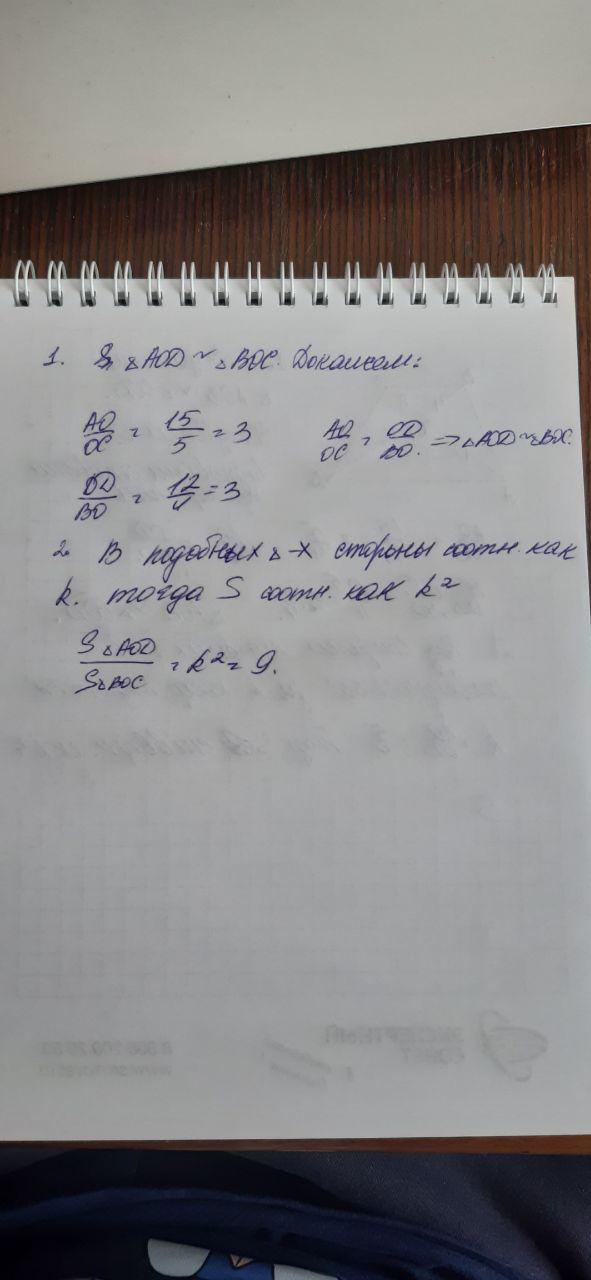 1. S △AOD ~ △BOC. Докажем:
AO/OC = 15/5 = 3 AO/OC = OD/BO. => △AOD ~ △BOC.
OD/BO = 12/4 = 3
2. В подобных △-х стороны соотн. как
k. тогда S соотн. как k²
S△AOD/S△BOC = k² = 9.